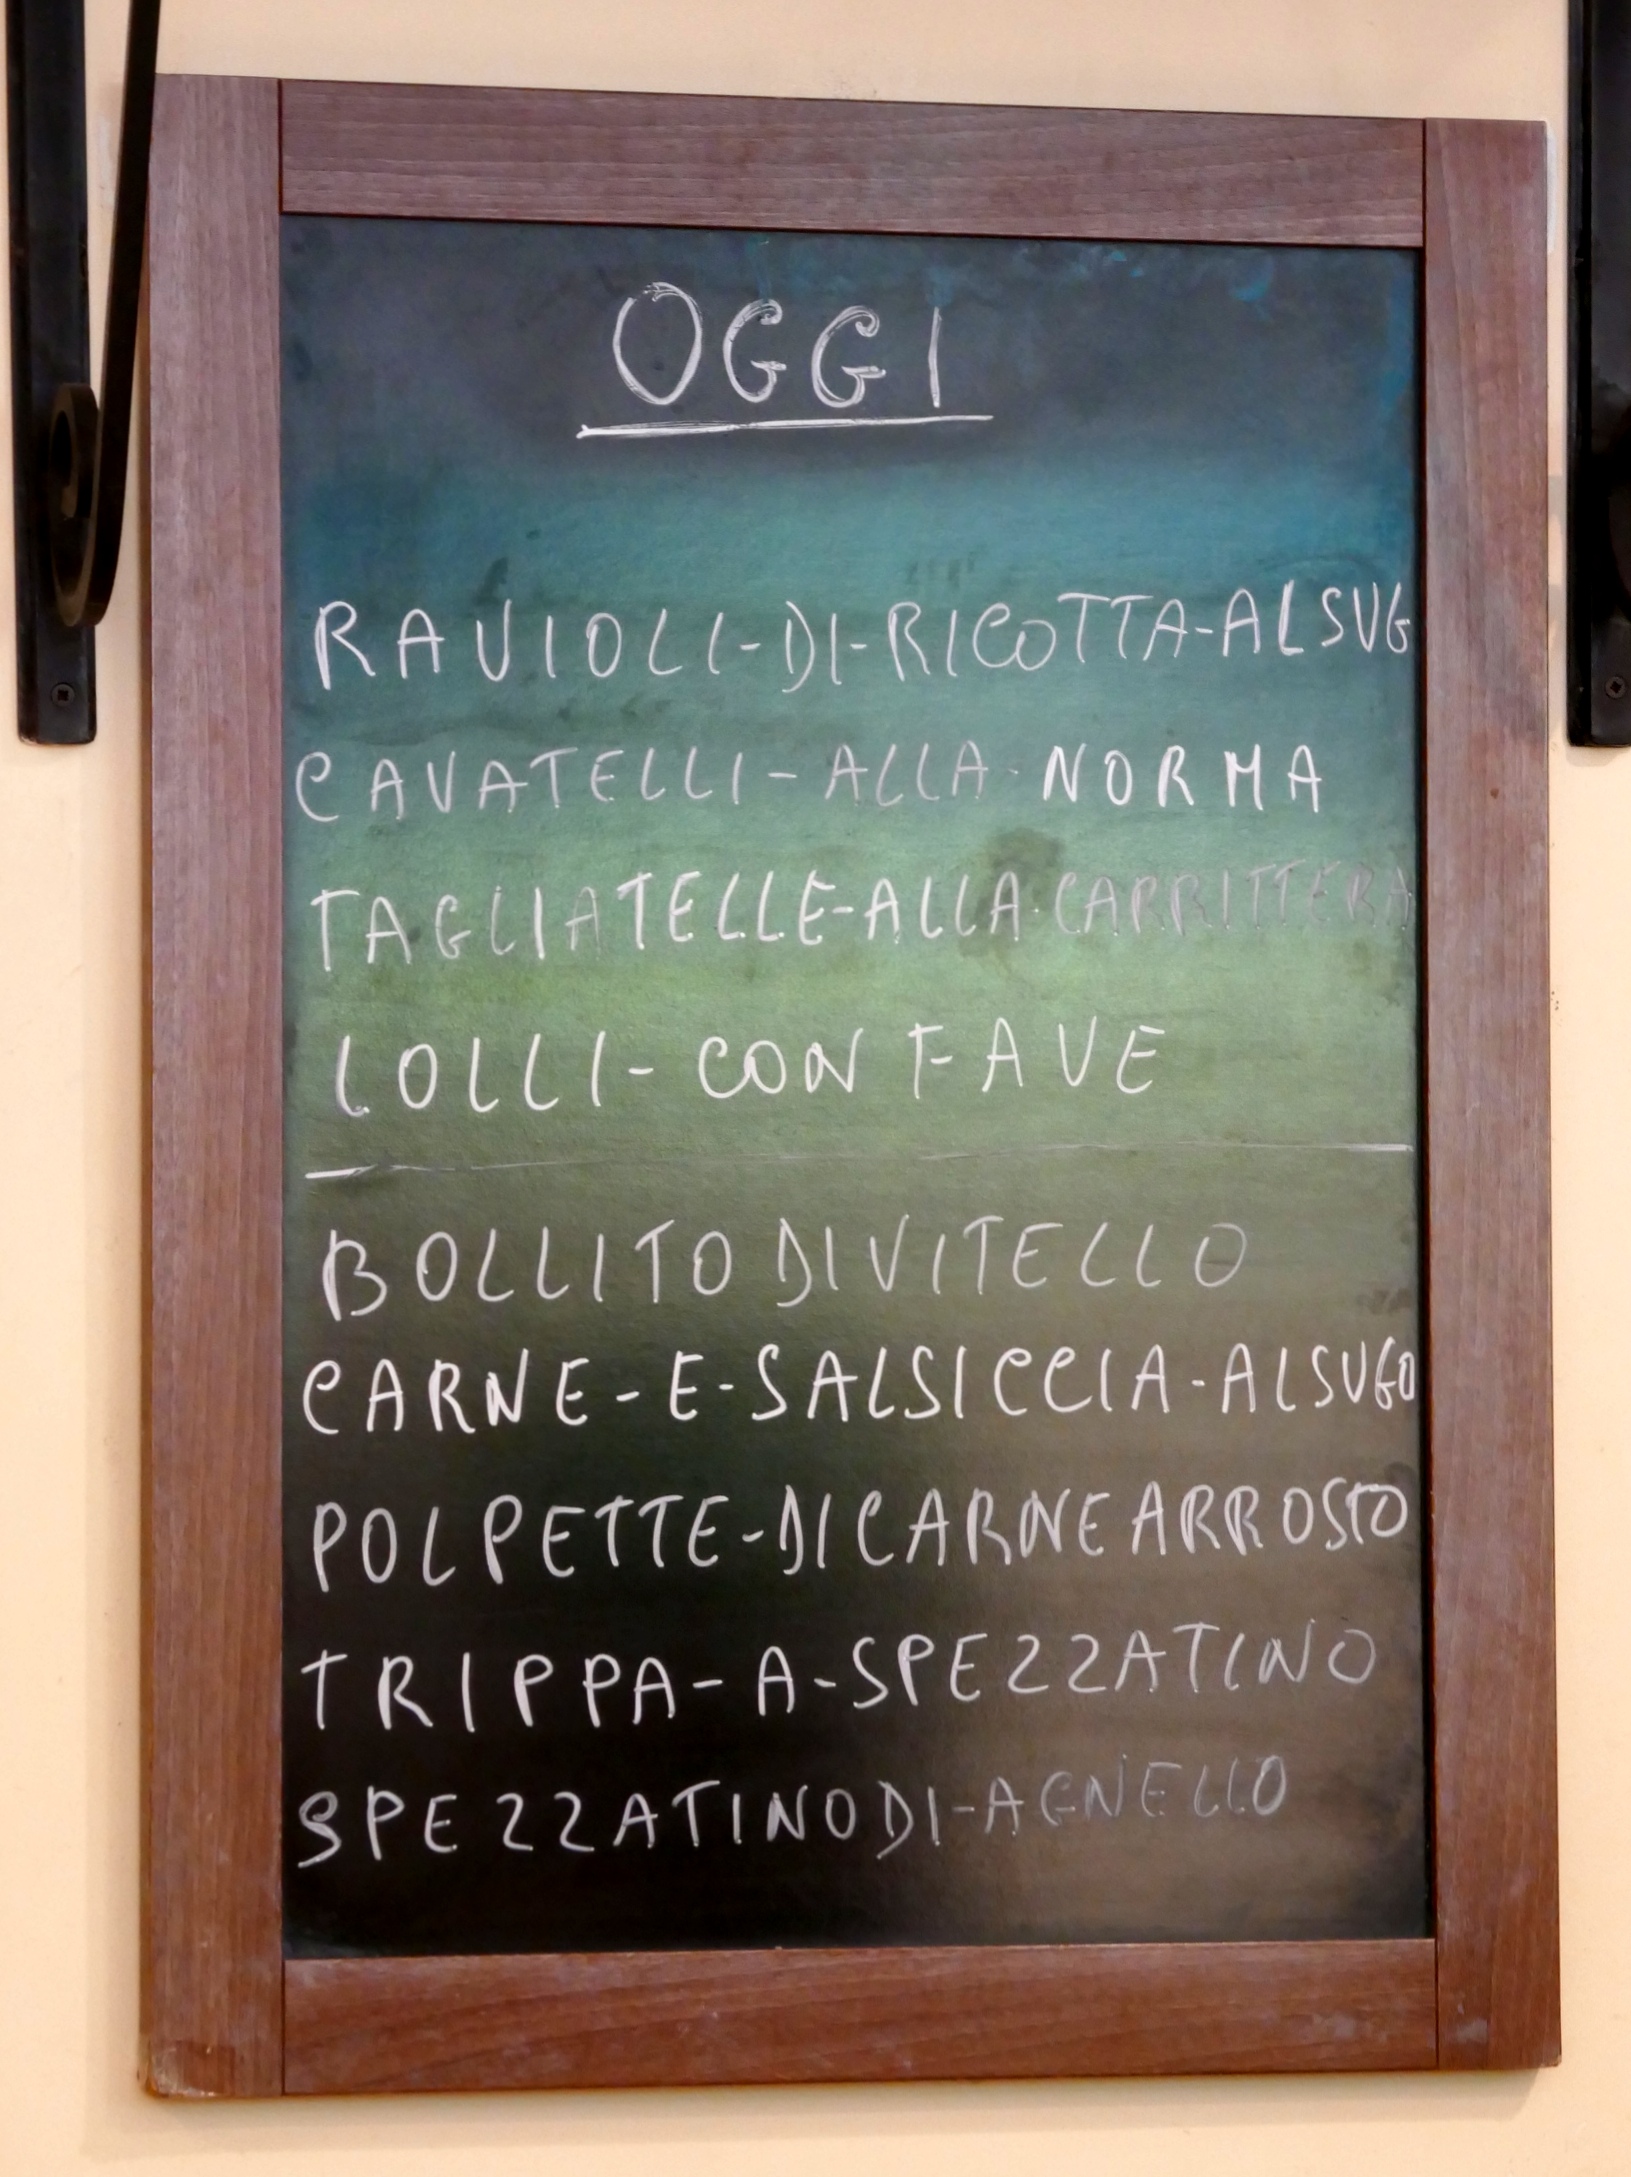 OGGI
RAVIOLI-DI-RICOTTA-ALSUG
CAVATELLI-ALLA NORMA
TAGLIATELLE-ALLA CARRITTERA
LOLLI-CON FAVE
BOLLITO DI VITELLO
CARNE-E-SALSICCIA-ALSUGO
POLPETTE-DI CARNE ARROSTO
TRIPPA-A-SPEZZATINO
SPEZZATINO DI-AGNELLO